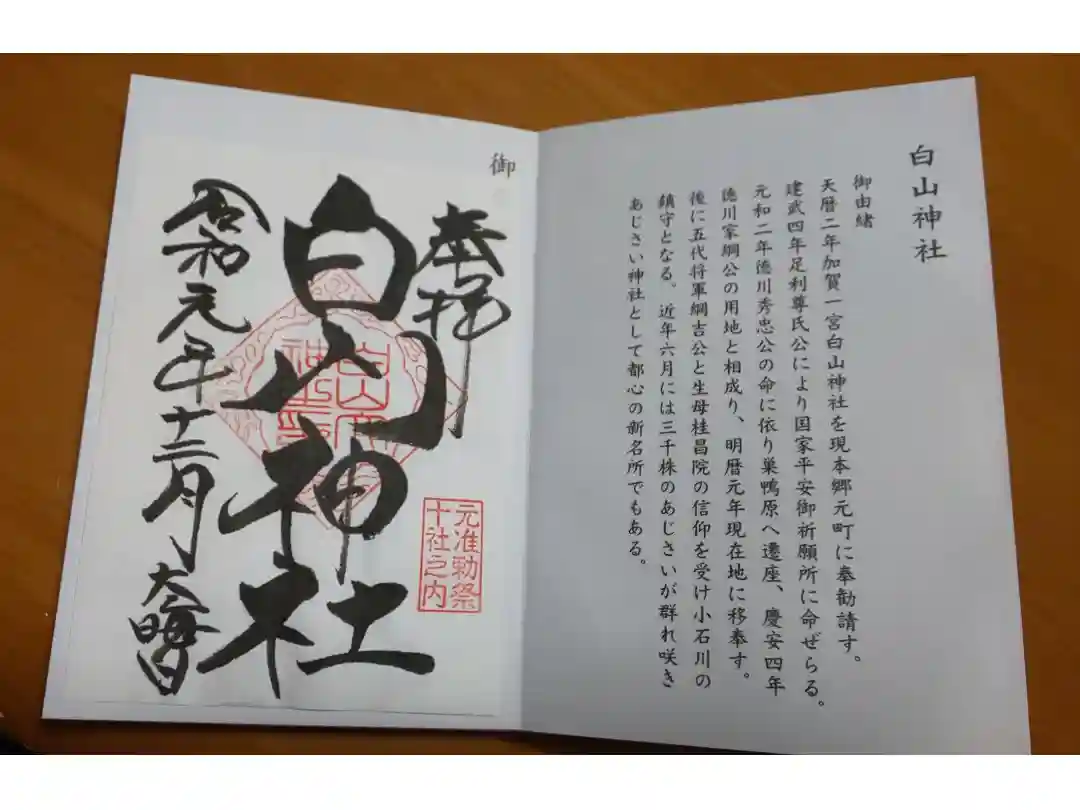 白山神社
御由緒
天暦二年加賀一宮白山神社を現本郷元町に奉勧請す。
建武四年足利尊氏公により国家平安御祈願所に命ぜらる。
元和二年徳川秀忠公の命に依り巣鴨原へ遷座、慶安四年
徳川家綱公の用地と相成り、明暦元年現在地に移奉す。
後に五代将軍綱吉公と生母桂昌院の信仰を受け小石川の
鎮守となる。近年六月には三千株のあじさいが群れ咲き
あじさい神社として都心の新名所でもある。
御
奉拝
元准勅祭
十社之内
白山神社
令和元年十二月大晦日